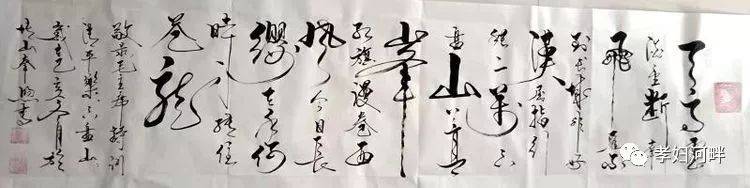 天高云
淡望断南
飞雁不
到长城非好
汉屈指行
程二万六
盘山上高
峰
红旗漫卷西
风今日长
缨在手何
时缚住
苍龙
敬录毛主席诗词
清平乐六盘山
月於
孝妇河畔